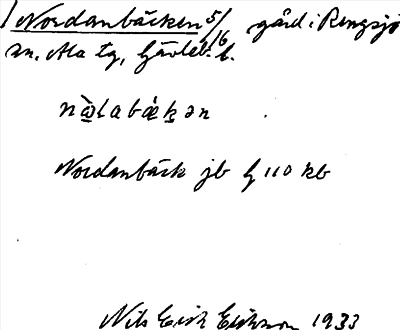 Nordanbäcken 5/16 gård i Rengsjö
sn, Ala tg, Gävleb. l.
nòlabǽkən
Nordanbäck jb G 110 kb
Nils Erik Erikson 1933